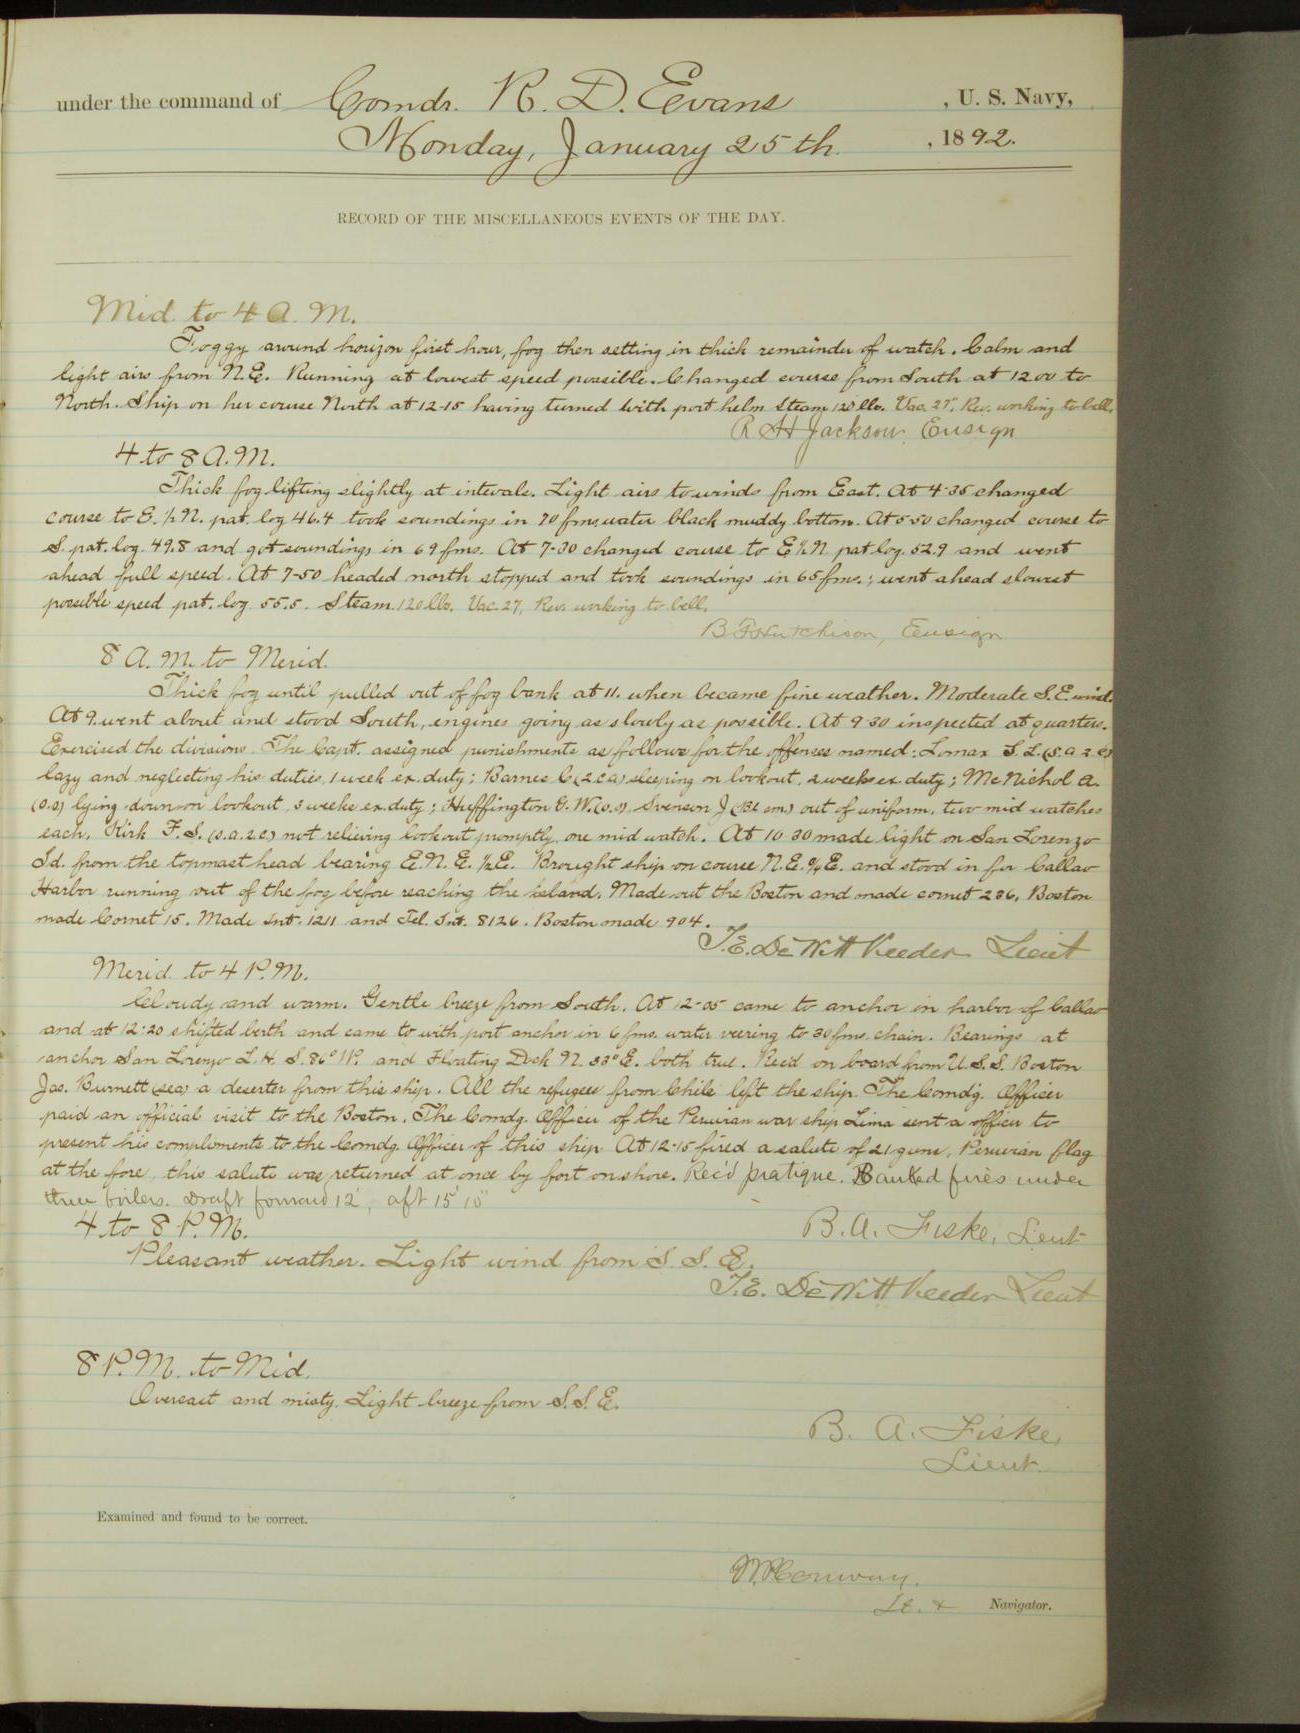 under the command of Comdr. R. D. Evans , U. S. Navy,
Monday, January 25th. , 1892.
RECORD OF THE MISCELLANEOUS EVENTS OF THE DAY.
Mid. to 4 A. M.
Foggy around horizon first hour, fog then setting in thick remainder of watch. Calm and
light airs from N.E. Running at lowest speed possible. Changed course from South at 12.00 to
North. Ship on her course North at 12-15 having turned with port helm Steam 120 lbs. Vac. 27". Rev. working to bell.
R H Jackson, Ensign
4 to 8 A.M.
Thick fog lifting slightly at intevals. Light airs to winds from East. At 4-35 changed
course to E. ½ N. pat. log 46.4 took soundings in 70 fms. water black muddy bottom. At 5-50 changed course to
S. pat. log. 49.8 and got soundings in 69 fms. At 7-30 changed course to E ½ N. pat log. 52.9 and went
ahead full speed. At 7-50 headed north stopped and took soundings in 65 fms.; went ahead slowest
possible speed pat. log. 55.5. Steam. 120 lbs. Vac. 27, Rev. working to bell.
B F Hutchison, Ensign
8 A. M. to Merid.
Thick fog until pulled out of fog bank at 11. when became fine weather. Moderate S.E. wind.
At 9. went about and stood South, engines going as slowly as possible. At 9-30 inspected at quarters.
Exercised the divisions. The Capt. assigned punishments as follows for the offenses named: Lomax S. L. (S. a 2 c)
lazy and neglecting his duties, 1 week ex. duty; Barnes C (2 C a) sleeping on lookout, 2 weeks ex. duty; McNichol A.
(O.S) lying down on lookout 3 weeks ex. duty; Huffington G. W. (O.S), Svenson J (Bl. sm.) out of uniform, two mid watches
each, Kirk F. S. (S. a. 2 c) not relieving lookout promptly, one mid watch. At 10-30 made light on San Lorenzo
Id. from the topmast head bearing E. N. E. ½ E. Brought ship on course N.E. ¾ E. and stood in for Callao
Harbor running out of the fog before reaching the island. Made out the Boston and made cornet 236, Boston
made Cornet 15. Made Int. 1211 and Tel. Int. 8126. Boston made 904.
T. E. DeWitt Veeder Lieut
Merid. to 4 P. M.
Cloudy and warm. Gentle breeze from South. At 12-05 came to anchor in harbor of Callao
and at 12:20 shifted berth and came to with port anchor in 6 fms. water veering to 30 fms. chain. Bearings at
anchor San Lorenzo L. H. S. 86° W. and Floating Dock N. 33° E. both true. Rec'd on board from U. S. S. Boston
Jas. Burnett (sea) a deserter from this ship. All the refugees from Chile left the ship. The Comdg. Officer
paid an official visit to the Boston. The Comdg. Officer of the Peruvian war ship Lima sent a officer to
present his compliments to the Comdg. Officer of this ship. At 12-15 fired a salute of 21 guns, Peruvian flag
at the fore, this salute was returned at once by fort on shore. Rec'd pratique. Banked fires under
three boilers. Draft forward 12', aft 15' 10"
B. A. Fiske, Lieut
4 to 8 P. M.
Pleasant weather. Light wind from S. S. E.
T. E. DeWitt Veeder Lieut
8 P. M. to Mid.
Overcast and misty. Light breeze from S. S. E.
B. A. Fiske,
Lieut.
Examined and found to be correct.
W. P. Conway,
Lt. & Navigator.